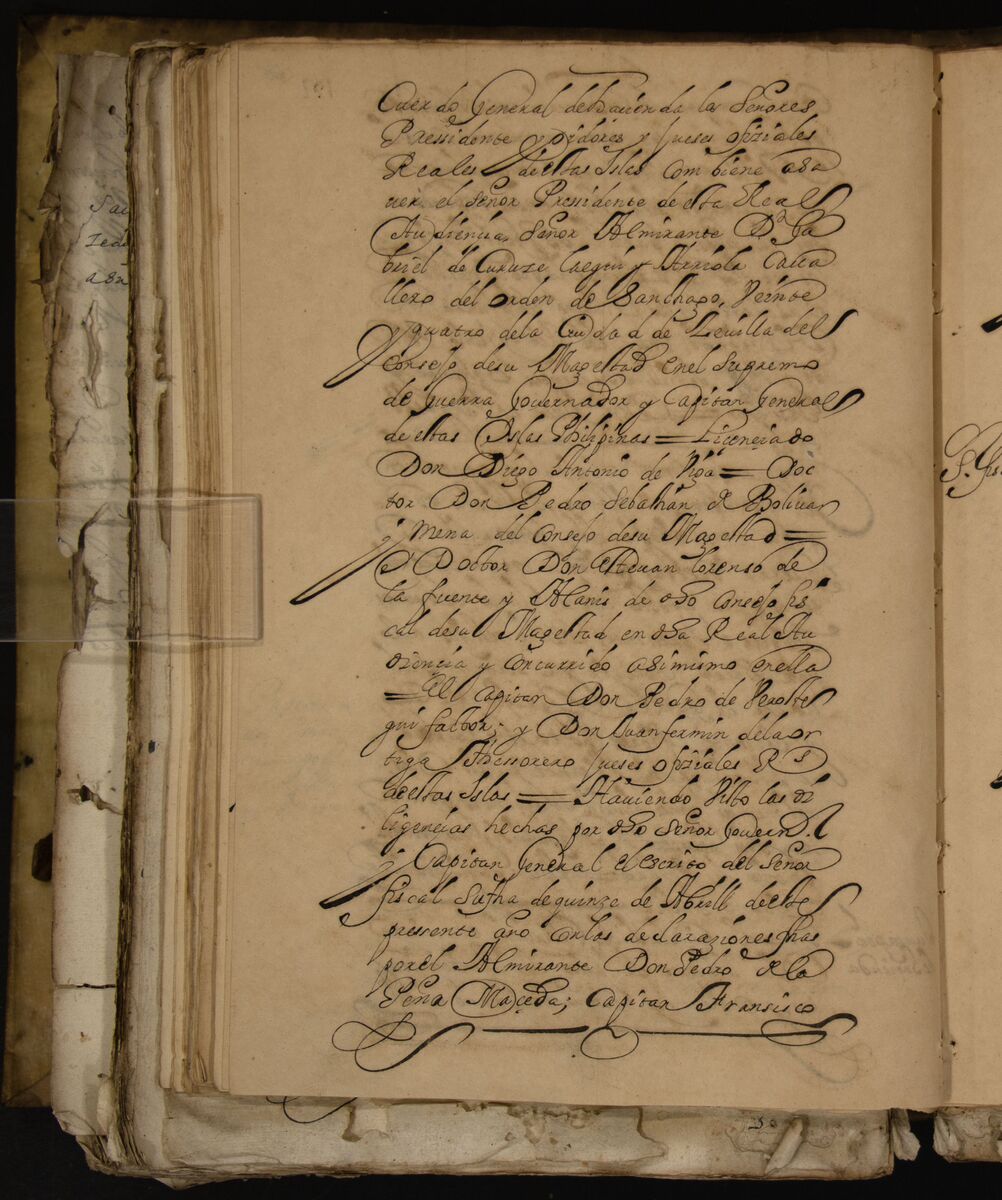 Cuerdo General de hauienda los Señores
Pressidente y oydores y Jueses ofiziales
Reales de estas Islas Combiene asa
uer el señor Pressidente de esta Real
Audiencia, Señor Almirante Dn Ga
briel de Curuze laegui y Arriola Caua
llero del orden de Santhiago, Veinte
y quatro de la Ciudad de Seuilla del
Consejo de su Magestad en el Supremo
de Guerra Gouernador y Capitan General
de estas Islas Philipinas = Licenciado
Don Diego Antonio de Viga = Doc
tor Don Pedro Sebastian de Boliuar
y mena del Consejo de su Magestad =
Doctor Don esteuan lorenso de
la fuente y Alanis de dho Consejo fis
cal de su Magestad en dha Real Au
diencia y Concurrido asimismo en ella
= El Capitan Don Pedro de Veraste
gui factor; y Don Juan fermin de la or
tiga Thessorero Jueses ofiziales Rs
de estas Islas = Hauiendo Visto las di
ligencias hechas por dho Señor Gouern.
y Capitan General el escrito del señor
fiscal su fha de quinze de Abrill de este
pressente año Con las declaraziones fhas
por el Almirante Don Pedro de la
Peña Maceda; Capitan Fransisco
Sai
a su